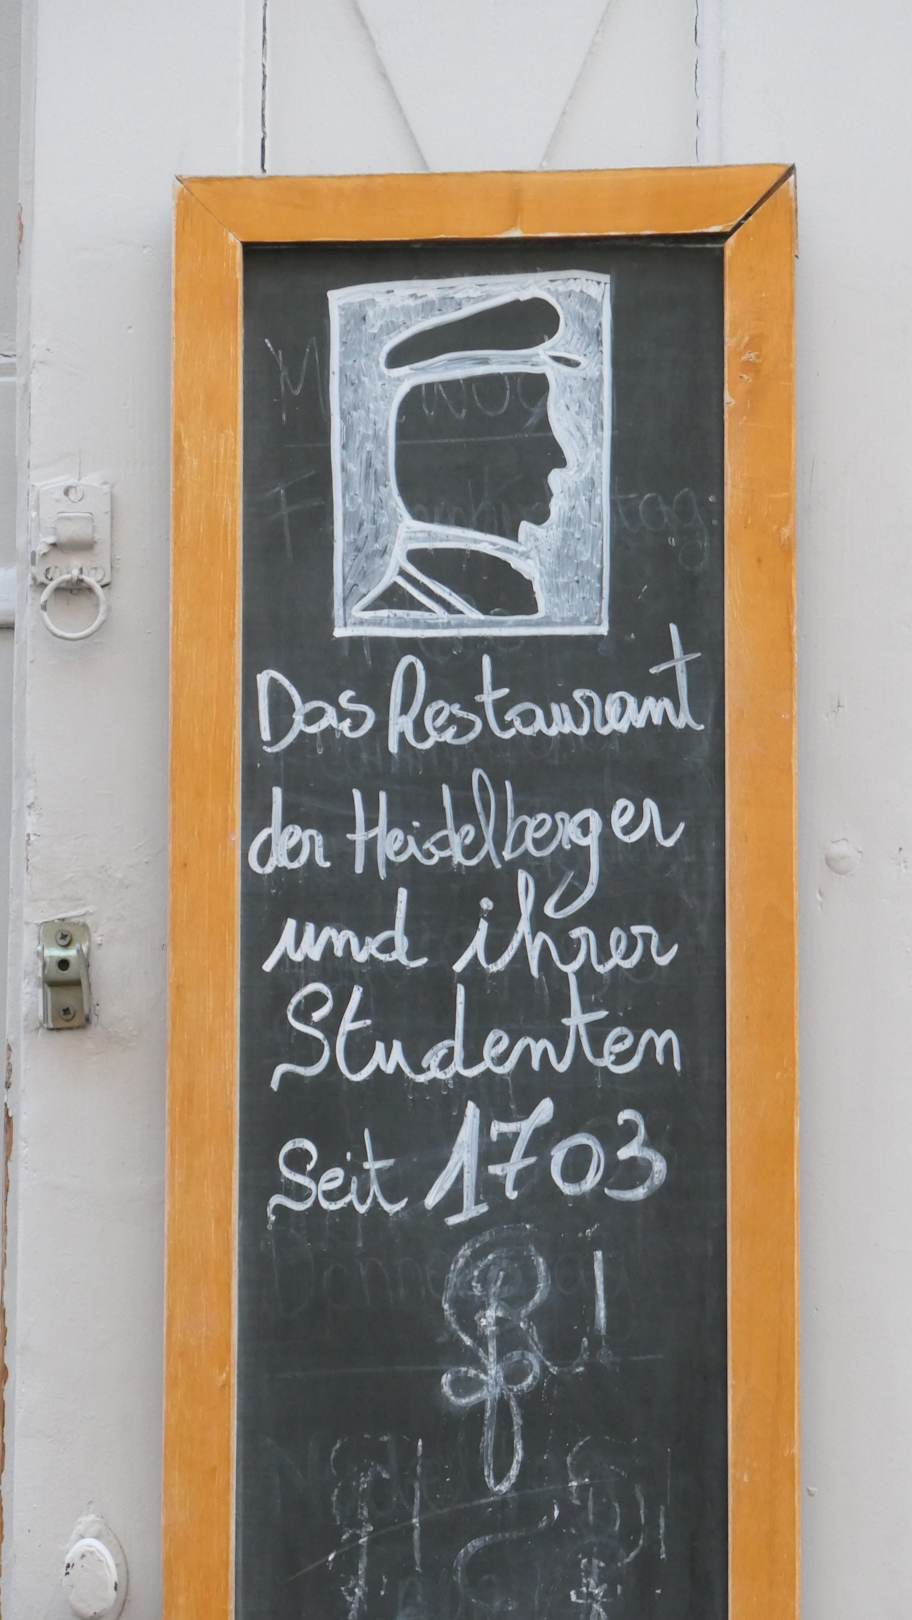 Das Restaurant
der Heidelberger
und ihrer
Studenten
Seit 1703